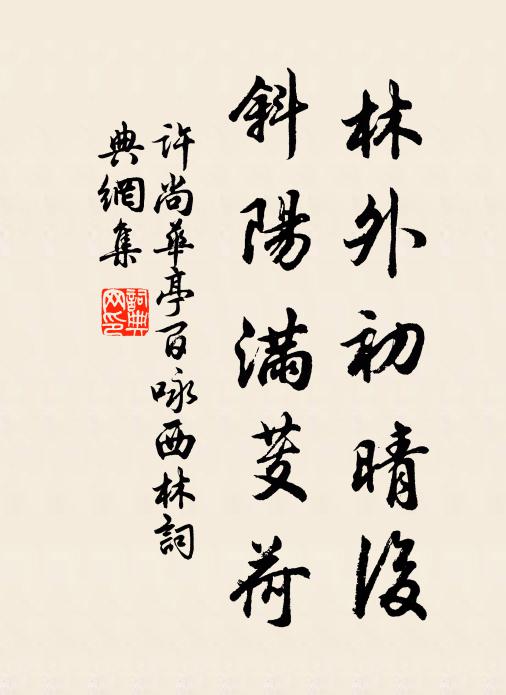 林外初晴後
斜陽滿芰荷
許尚華亭百咏西林詞
典網集
詞典網印